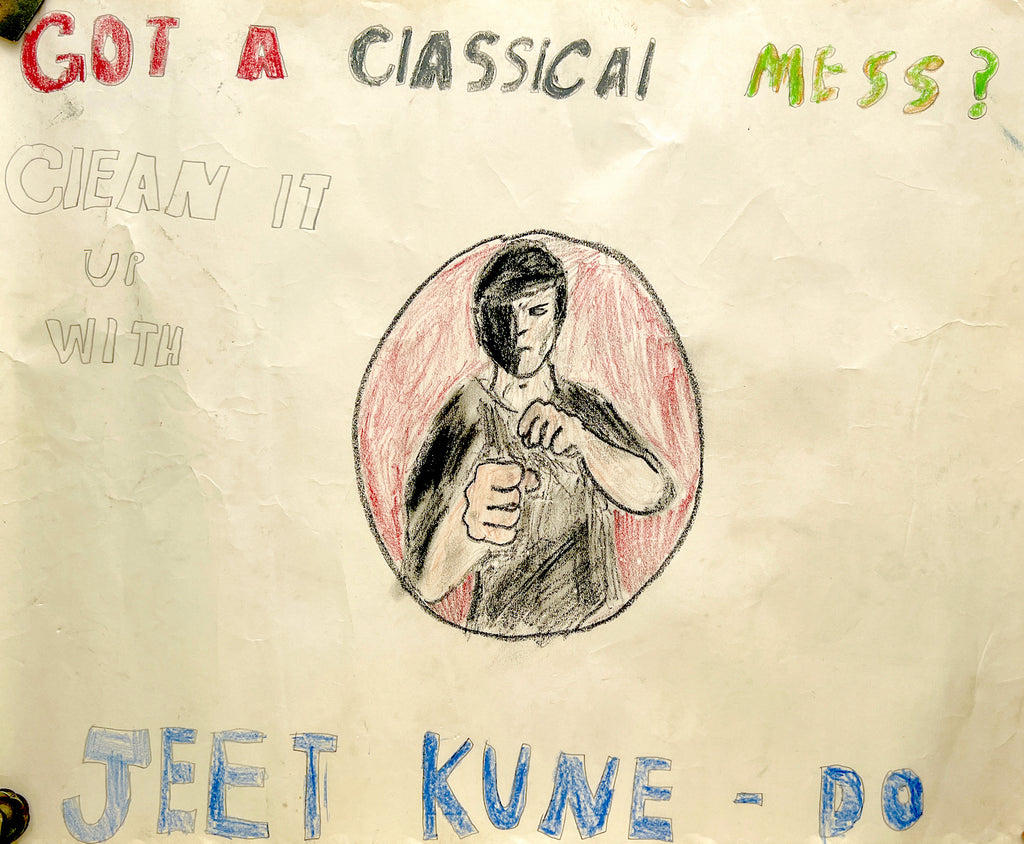 GOT A ClASSICAl MESS?
ClEAN IT
UP
WITH
JEET KUNE - DO